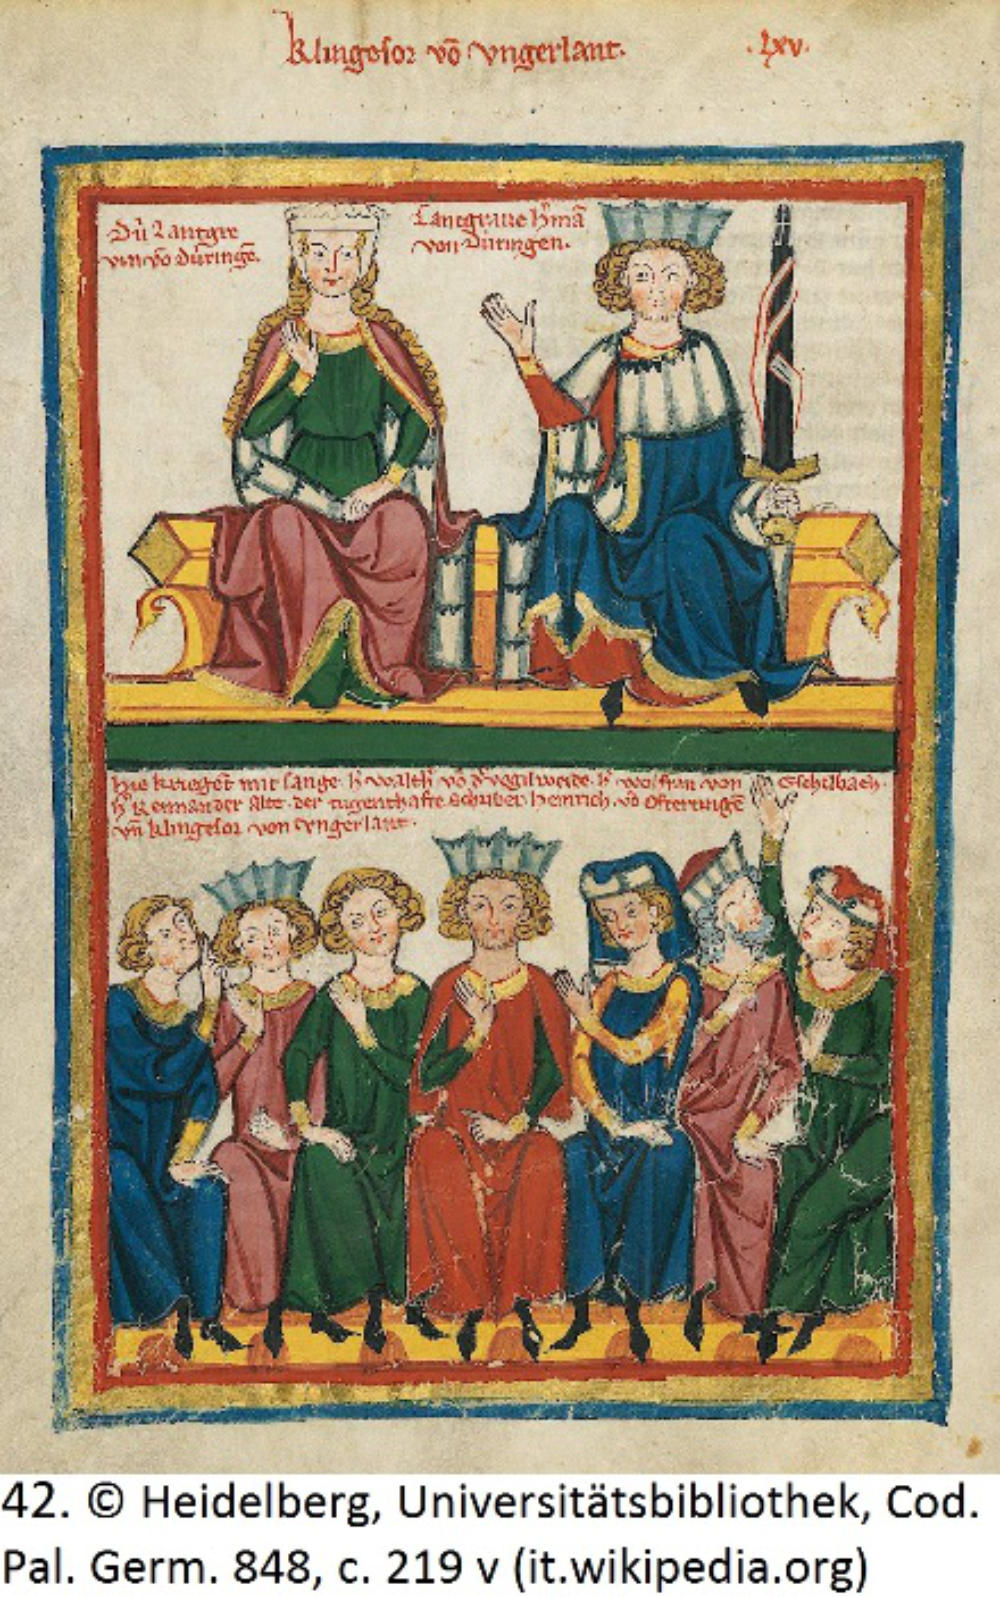 Klingesor võ vngerlant.
.lxv.
Dú Lantgre
vin võ dúringē.
Lantgraue h̾mā
von Dúringen.
Hie kriegēt mit sange. h̾ walth̾ võ d̾ vogilweide. h̾ wolfran von Eschilbach.
h̾ Reinman der alte. der tugenthafte Schriber. Heinrich võ Oftertingē
vñ klingesor von vngerlant.
42. © Heidelberg, Universitätsbibliothek, Cod.
Pal. Germ. 848, c. 219 v (it.wikipedia.org)